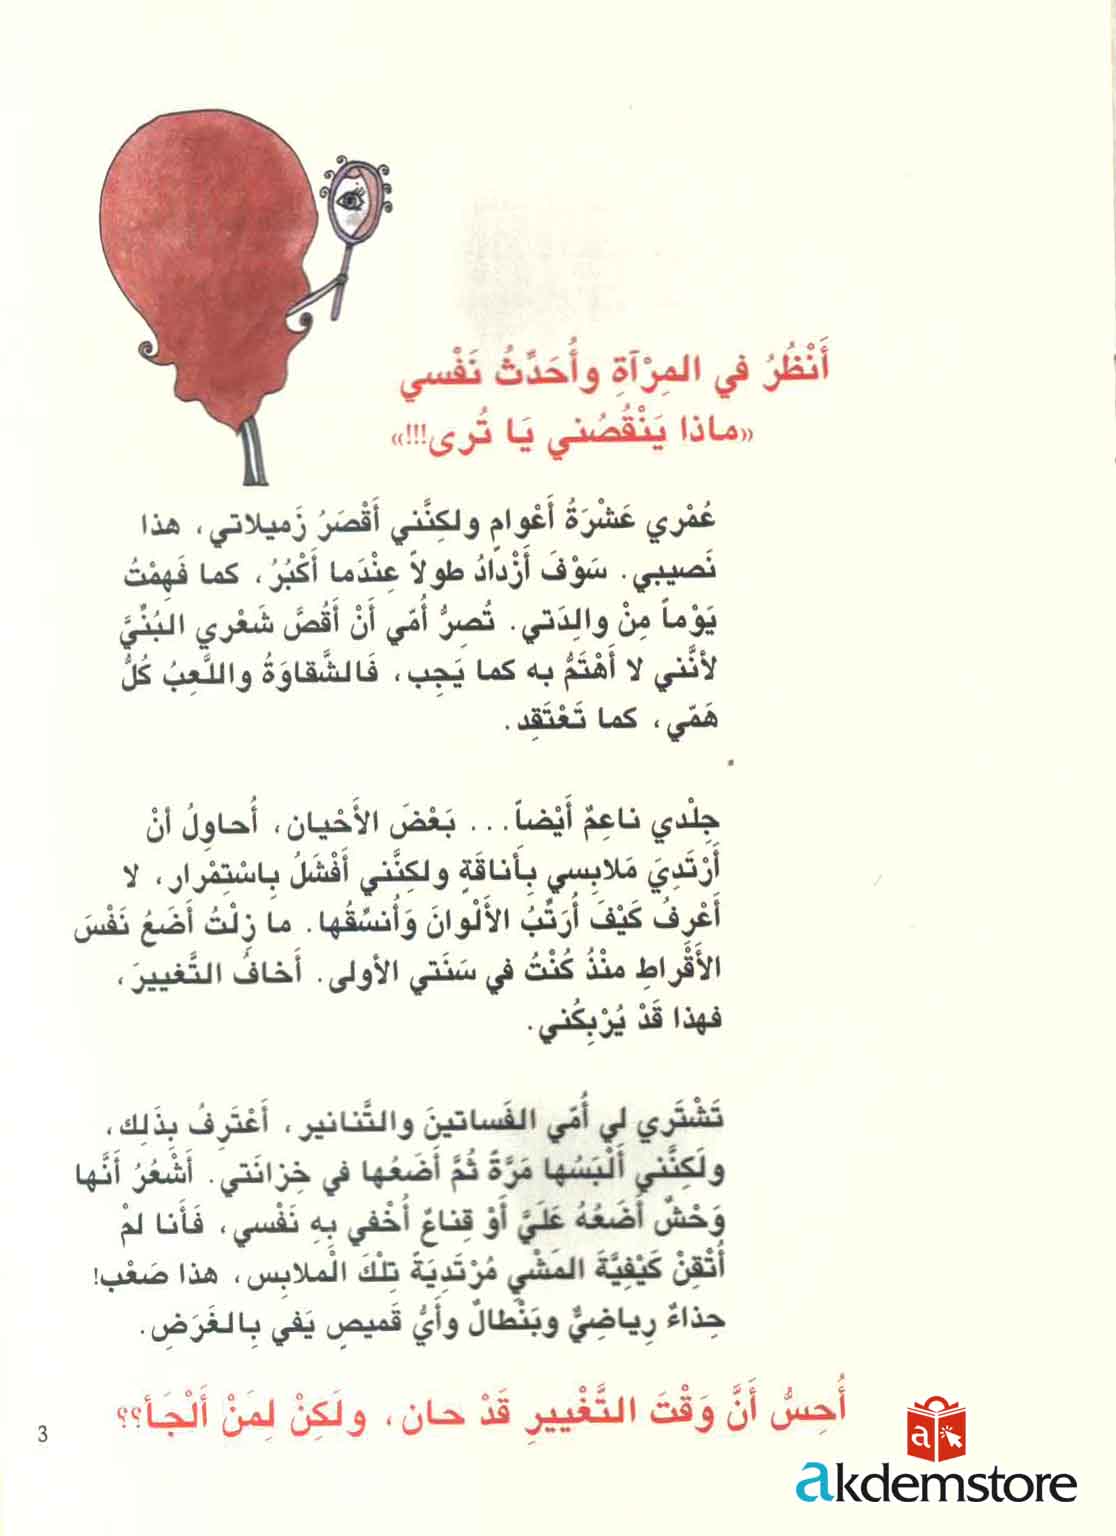 أَنْظُرُ في المِرْآةِ وأُحَدِّثُ نَفْسي
«ماذا يَنْقُصُني يَا تُرى!!!»
عُمْري عَشْرَةُ أَعْوامٍ ولكِنَّني أَقْصَرُ زَميلاتي، هذا
نَصيبي. سَوْفَ أَزْدادُ طولاً عِنْدَما أَكْبُرُ، كما فَهِمْتُ
يَوْماً مِنْ والِدَتي. تُصِرُّ أُمّي أَنْ أَقُصَّ شَعْري البُنِّيَّ
لأنَّني لا أَهْتَمُّ به كما يَجِب، فَالشَّقاوَةُ واللَّعِبُ كُلُّ
هَمّي، كما تَعْتَقِد.
جِلْدي ناعِمٌ أَيْضاً... بَعْضَ الأَحْيان، أُحاوِلُ أنْ
أَرْتَدِيَ مَلابِسي بِأَناقَةٍ ولكِنَّني أَفْشَلُ بِاسْتِمْرار، لا
أَعْرِفُ كَيْفَ أُرَتِّبُ الأَلْوانَ وَأُنسِّقُها. ما زِلْتُ أَضَعُ نَفْسَ
الأَقْراطِ منْذُ كُنْتُ في سَنَتي الأولى. أَخافُ التَّغييرَ،
فهذا قَدْ يُرْبِكُني.
تَشْتَري لي أُمّي الفَساتينَ والتَّنانير، أَعْتَرِفُ بِذَلِك،
ولَكِنَّني أَلْبَسُها مَرَّةً ثُمَّ أَضَعُها في خِزانَتي. أَشْعُرُ أَنَّها
وَحْشٌ أَضَعُهُ عَلَيَّ أَوْ قِناعٌ أُخْفي بِهِ نَفْسي، فَأَنا لمْ
أُتْقِنْ كَيْفِيَّةَ المَشْي مُرْتَدِيَةً تِلْكَ الْملابِس، هذا صَعْب!
حِذاءٌ رِياضِيٌّ وبَنْطالٌ وأَيُّ قَميصٍ يَفي بِالغَرَضِ.
أُحِسُّ أَنَّ وَقْتَ التَّغْييرِ قَدْ حان، ولَكِنْ لِمَنْ أَلْجَأ؟؟
3
a
akdemstore